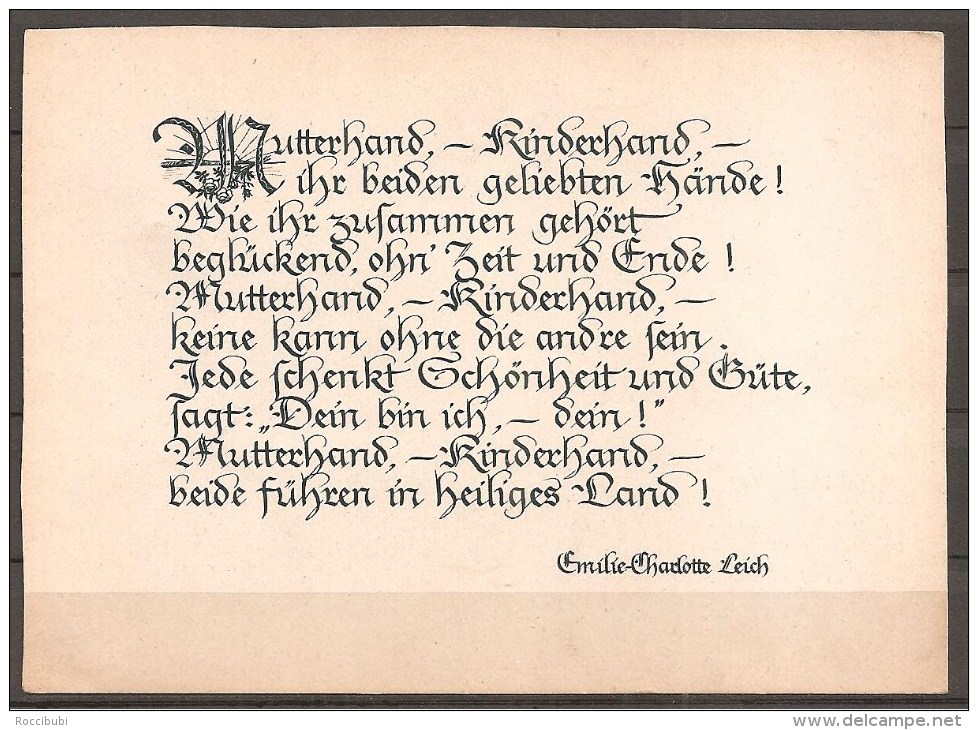 Mutterhand, – Kinderhand, –
ihr beiden geliebten Hände!
Wie ihr zusammen gehört
beglückend, ohn' Zeit und Ende!
Mutterhand, – Kinderhand, –
keine kann ohne die andre sein.
Jede schenkt Schönheit und Güte,
sagt: „Dein bin ich, – dein!"
Mutterhand, – Kinderhand, –
beide führen in heiliges Land!
Emilie-Charlotte Leich
Roccibubi
www.delcampe.net